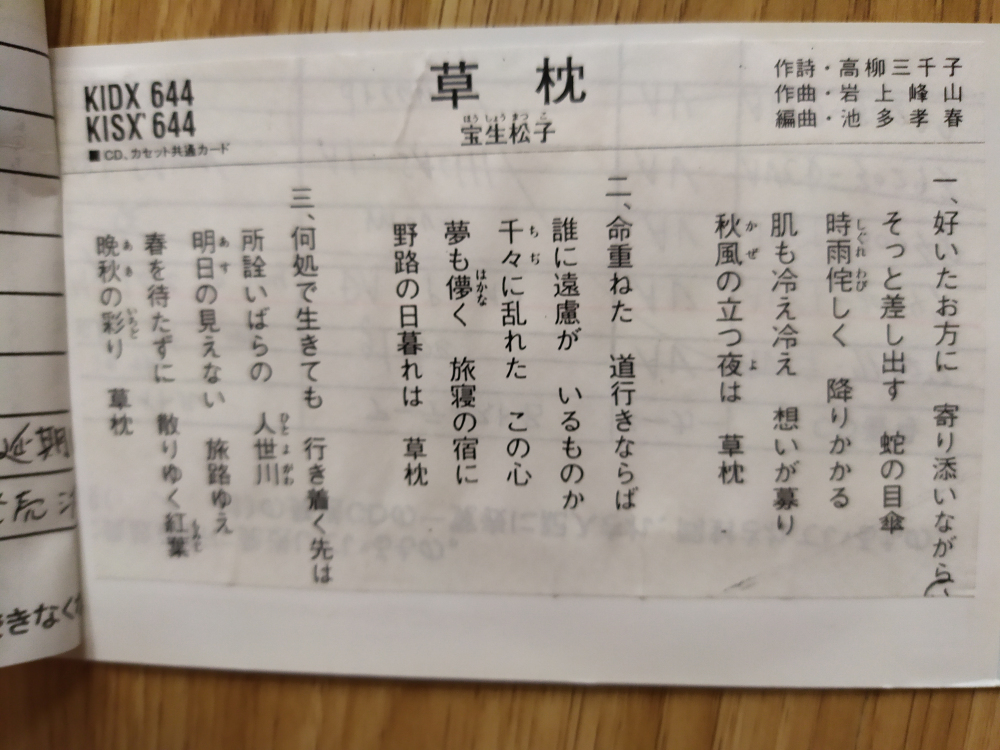 KIDX 644
KISX 644
■CD、カセット共通カード
草枕
ほうしょうまつこ
宝生松子
作詩・高柳三千子
作曲・岩上峰山
編曲・池多孝春
一、好いたお方に 寄り添いながら
そっと差し出す 蛇の目傘
時雨侘しく 降りかかる
肌も冷え冷え 想いが募り
秋風の立つ夜は 草枕
二、命重ねた 道行きならば
誰に遠慮が いるものか
千々に乱れた この心
夢も儚く 旅寝の宿に
野路の日暮れは 草枕
三、何処で生きても 行き着く先は
所詮いばらの 人世川
明日の見えない 旅路ゆえ
春を待たずに 散りゆく紅葉
晩秋の彩り 草枕
延期
できなく